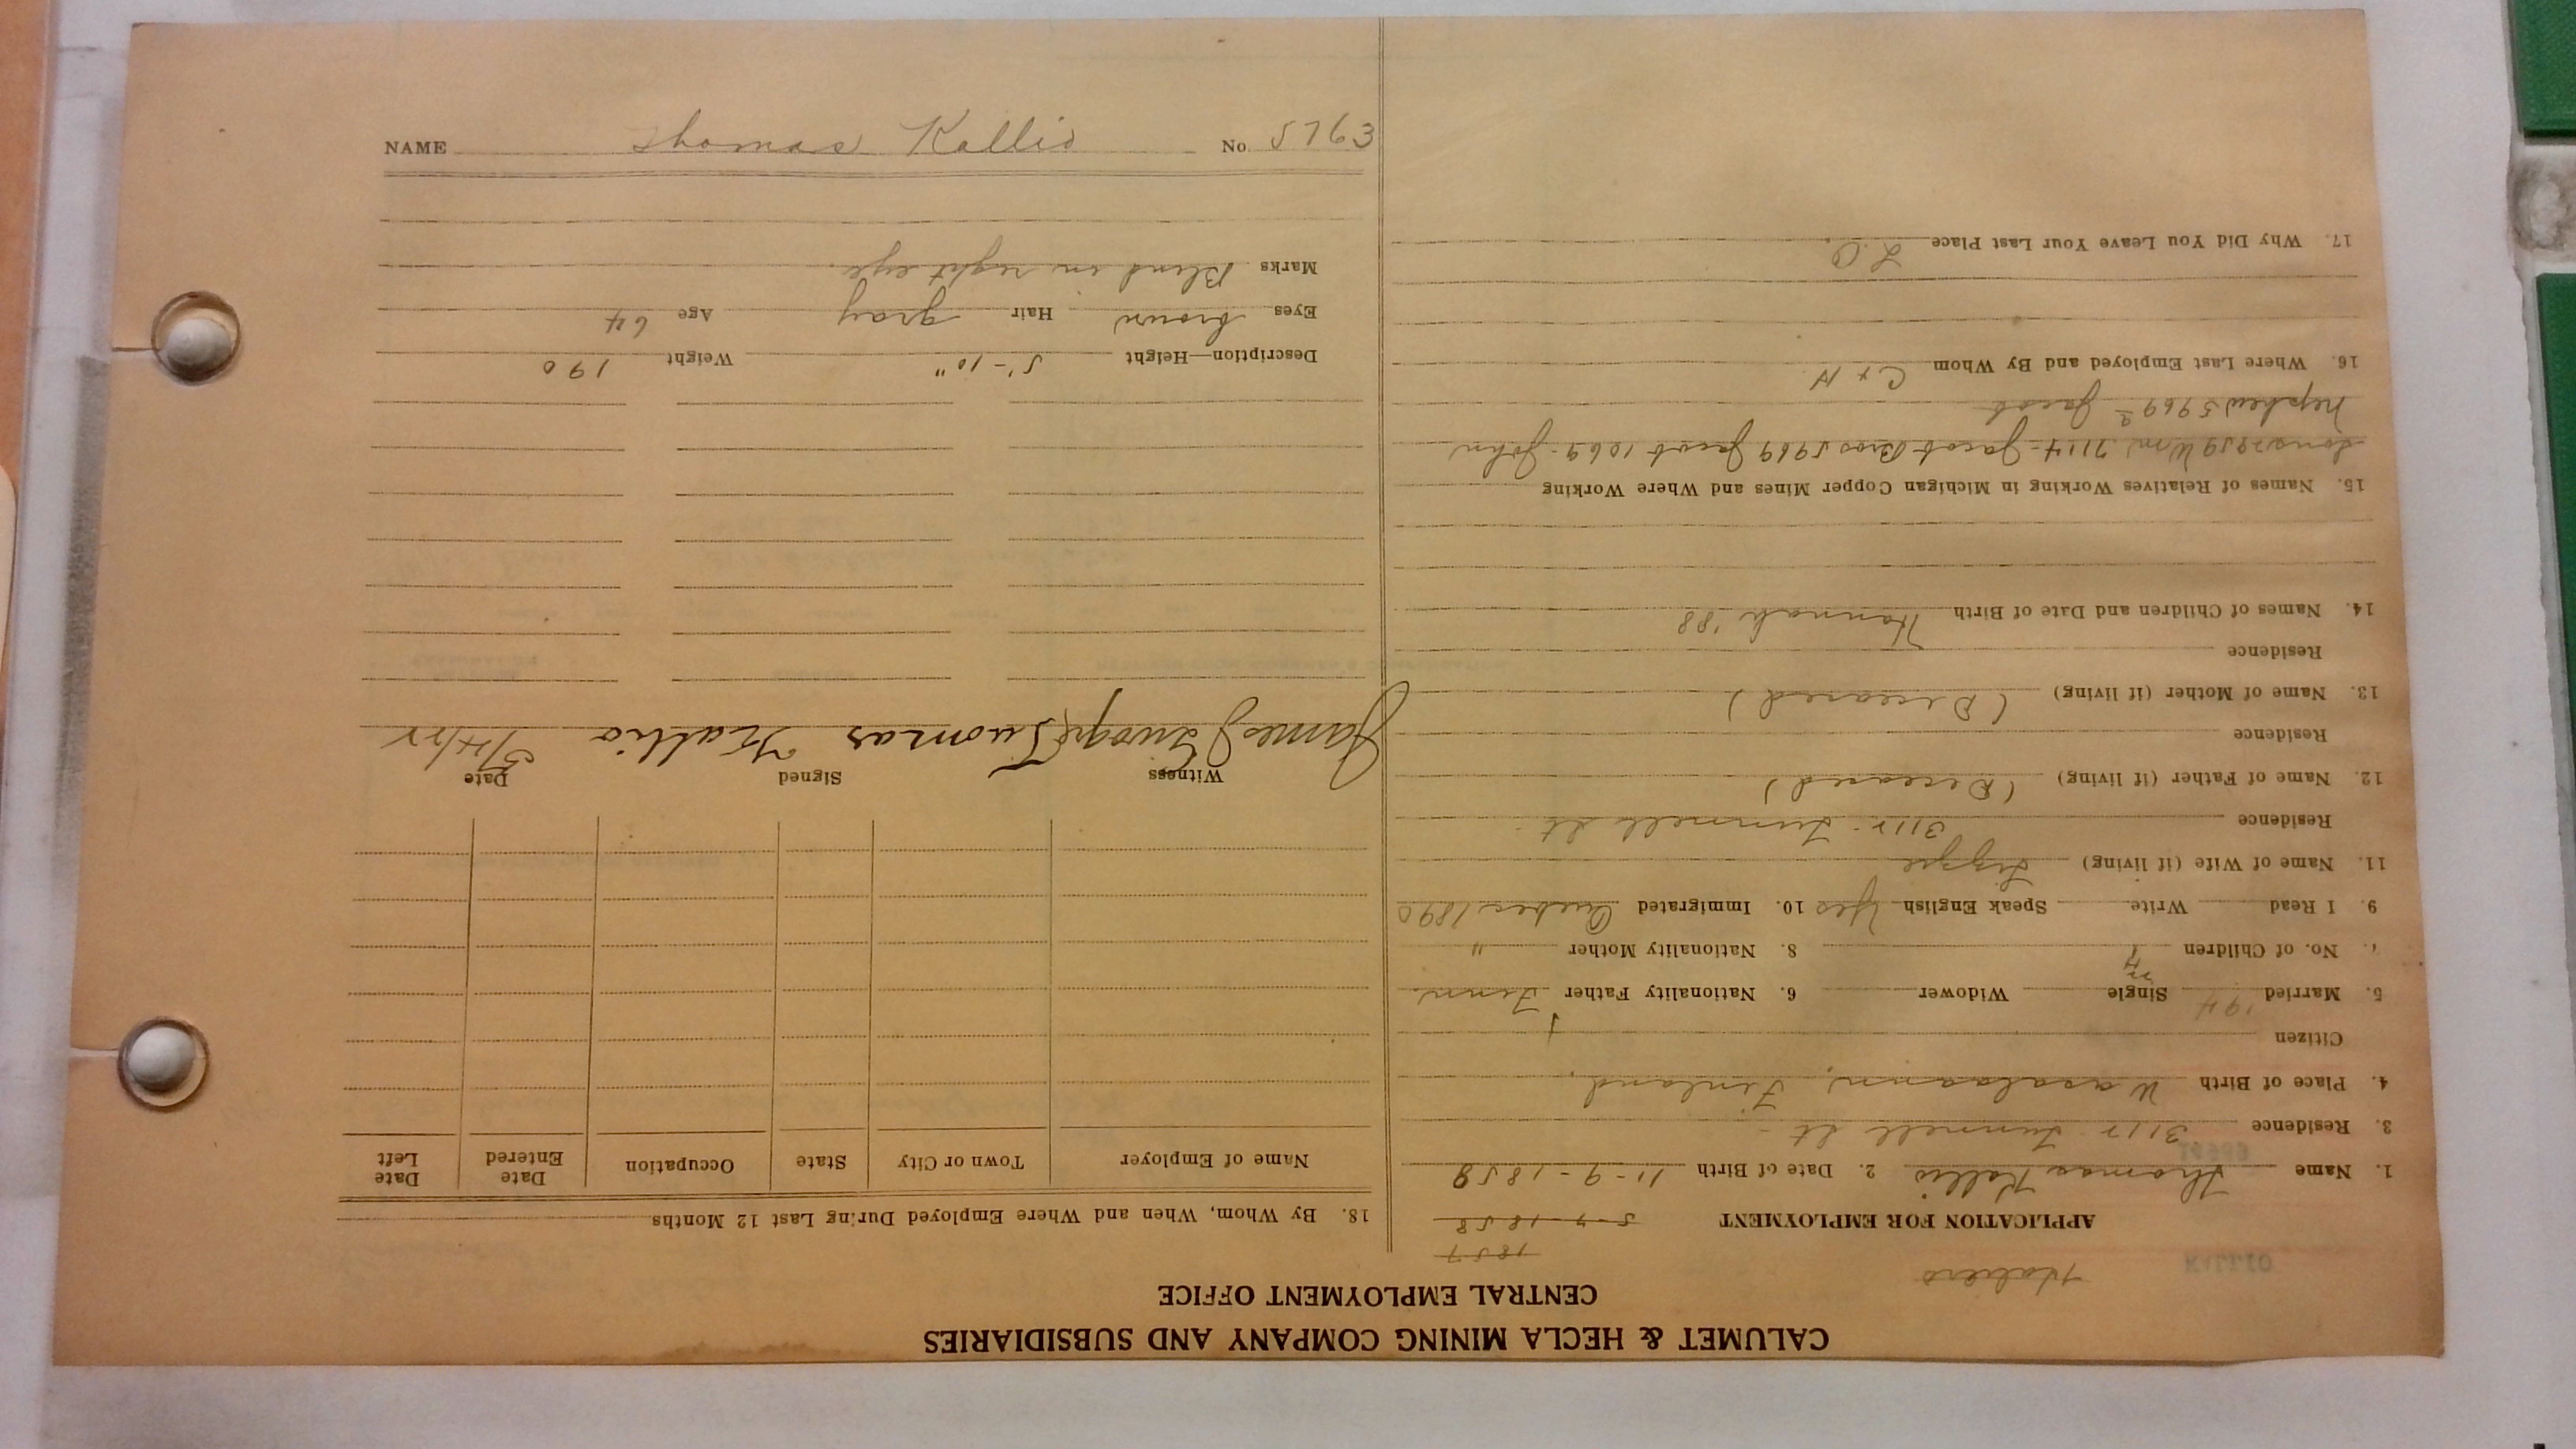 CALUMET & HECLA MINING COMPANY AND SUBSIDIARIES
CENTRAL EMPLOYMENT OFFICE
1857
APPLICATION FOR EMPLOYMENT 5-7-1858
1. Name Thomas Kallio 2. Date of Birth 11-9-1858
3. Residence 3112 Tunnell St-
4. Place of Birth Wasalaani, Finland,
Citizen
5. Married '94 Single Widower 6. Nationality Father Finn.
No. of Children 8. Nationality Mother "
9. I Read Write Speak English Yes 10. Immigrated Quebec 1890
11. Name of Wife (if living) Lizzie
Residence 3112 Tunnell St-
12. Name of Father (if living) (Deceased)
Residence
13. Name of Mother (if living) (Deceased)
Residence
14. Names of Children and Date of Birth Hannah '88
15. Names of Relatives Working in Michigan Copper Mines and Where Working
Sons 2959 Wm 7114-Jacob Bros 5969 Jacob 1069-John
Nephew 5969 2 Jacob
16. Where Last Employed and By Whom C + H.
17. Why Did You Leave Your Last Place L.O.
18. By Whom, When and Where Employed During Last 12 Months
Name of Employer Town or City State Occupation Date Entered Date Left
Witness Signed Date
James Tuomas Kallio
Description—Height 5'-10" Weight 190
Eyes brown Hair gray Age 64
Marks Blind in right eye.
NAME Thomas Kallio No. 5763
KALLIO